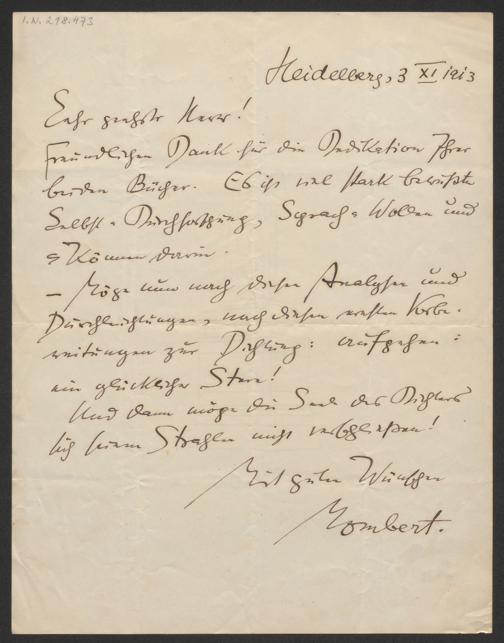 I.N. 218.473
Heidelberg, 3 XI 1913
Sehr geehrter Herr!
Freundlichen Dank für die Dedikation Ihrer
beiden Bücher. Es ist viel stark bewußte
Selbst-Durchforschung, Sprach-Wollen und
-Können darin.
— Möge nun nach diesen Analysen und
Durchleuchtungen, nach diesen ersten Vorbe-
reitungen zur Dichtung: aufgehen:
ein glücklicher Stern!
Und dann möge die Seele des Dichters
sich seinen Strahlen nicht verschließen!
Mit guten Wünschen
Mombert.